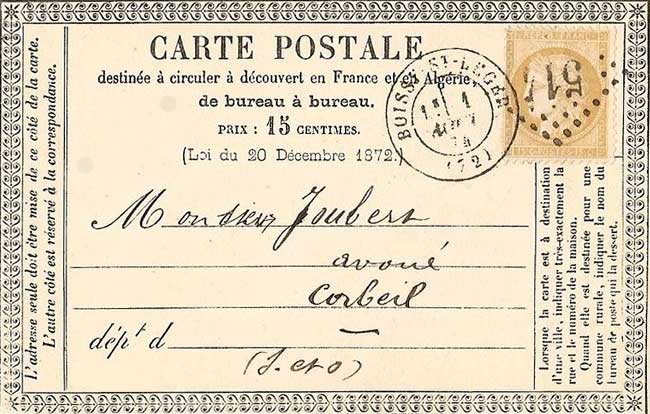 CARTE POSTALE
destinée à circuler à découvert en France et en Algérie,
de bureau à bureau.
PRIX : 15 CENTIMES.
(Loi du 20 Décembre 1872.)
Monsieur Joubert
avoué
Corbeil
dép.t d
(S. et O)
L'adresse seule doit être mise de ce côté de la carte.
L'autre côté est réservé à la correspondance.
Lorsque la carte est à destination
d'une ville, indiquer très-exactement la
rue et le numéro de la maison.
Quand elle est destinée pour une
commune rurale, indiquer le nom du
bureau de poste qui la dessert.
BOISSY-ST-LEGER
1
74
(72)
REPUB. FRANC.
15 C. POSTES 15 C.
51